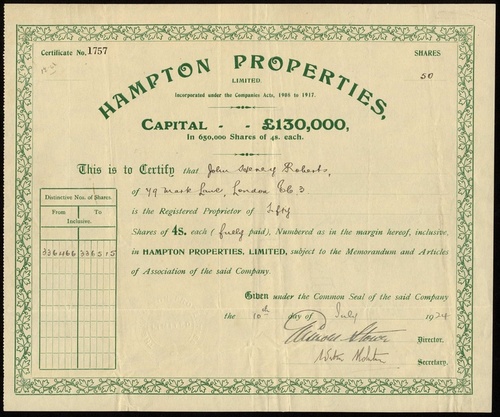 Certificate No. 1757
SHARES
50
HAMPTON PROPERTIES,
LIMITED.
Incorporated under the Companies Acts, 1908 to 1917.
CAPITAL - - £130,000,
In 650,000 Shares of 4s. each.
This is to Certify that John Henry Roberts,
of 79 Mark Lane, London EC 3
is the Registered Proprietor of Fifty
Shares of 4s. each (fully paid), Numbered as in the margin hereof, inclusive,
in HAMPTON PROPERTIES, LIMITED, subject to the Memorandum and Articles
of Association of the said Company.
Distinctive Nos. of Shares.
From To
Inclusive.
336466 336515
Given under the Common Seal of the said Company
the 10th day of July 1924
Director.
Secretary.